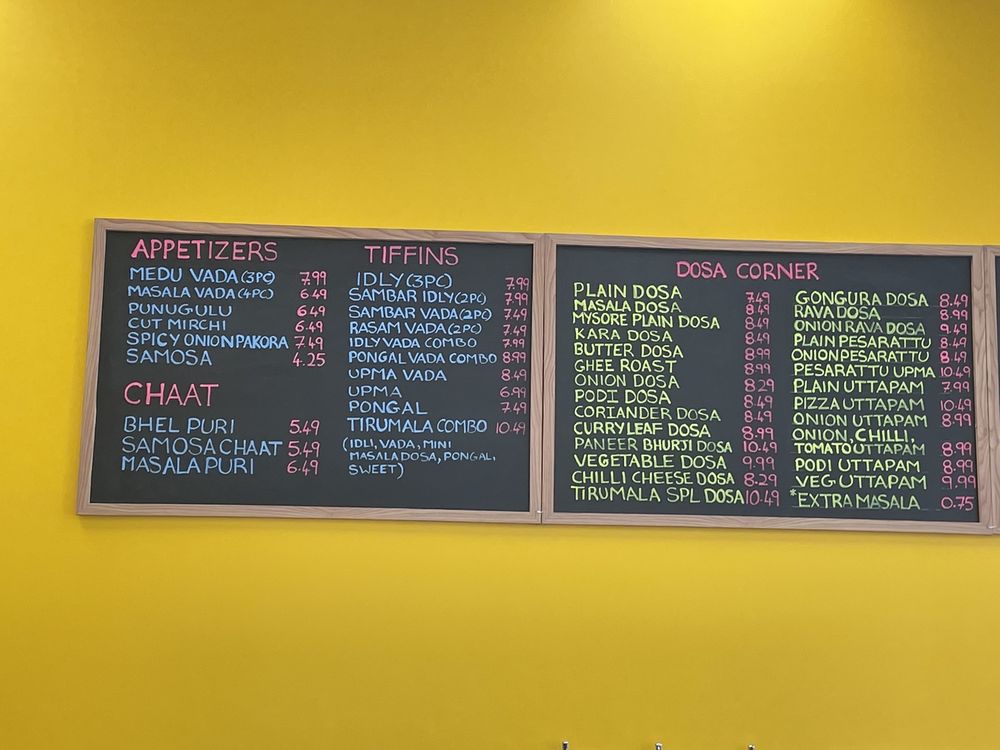 APPETIZERS
MEDU VADA (3PC) 7.99
MASALA VADA (4PC) 6.49
PUNUGULU 6.49
CUT MIRCHI 6.49
SPICY ONION PAKORA 7.49
SAMOSA 4.25
CHAAT
BHEL PURI 5.49
SAMOSA CHAAT 5.49
MASALA PURI 6.49
TIFFINS
IDLY (3PC) 7.99
SAMBAR IDLY (2PC) 7.99
SAMBAR VADA (2PC) 7.49
RASAM VADA (2PC) 7.49
IDLY VADA COMBO 7.99
PONGAL VADA COMBO 8.99
UPMA VADA 8.49
UPMA 6.99
PONGAL 7.49
TIRUMALA COMBO 10.49
(IDLI, VADA, MINI
MASALA DOSA, PONGAL,
SWEET)
DOSA CORNER
PLAIN DOSA 7.49
MASALA DOSA 8.49
MYSORE PLAIN DOSA 8.49
KARA DOSA 8.49
BUTTER DOSA 8.99
GHEE ROAST 8.99
ONION DOSA 8.29
PODI DOSA 8.49
CORIANDER DOSA 8.49
CURRY LEAF DOSA 8.99
PANEER BHURJI DOSA 10.49
VEGETABLE DOSA 9.99
CHILLI CHEESE DOSA 8.29
TIRUMALA SPL DOSA 10.49
GONGURA DOSA 8.49
RAVA DOSA 8.99
ONION RAVA DOSA 9.49
PLAIN PESARATTU 8.49
ONION PESARATTU 8.49
PESARATTU UPMA 10.49
PLAIN UTTAPAM 7.99
PIZZA UTTAPAM 10.49
ONION UTTAPAM 8.99
ONION, CHILLI,
TOMATO UTTAPAM 8.99
PODI UTTAPAM 8.99
VEG UTTAPAM 9.99
*EXTRA MASALA 0.75